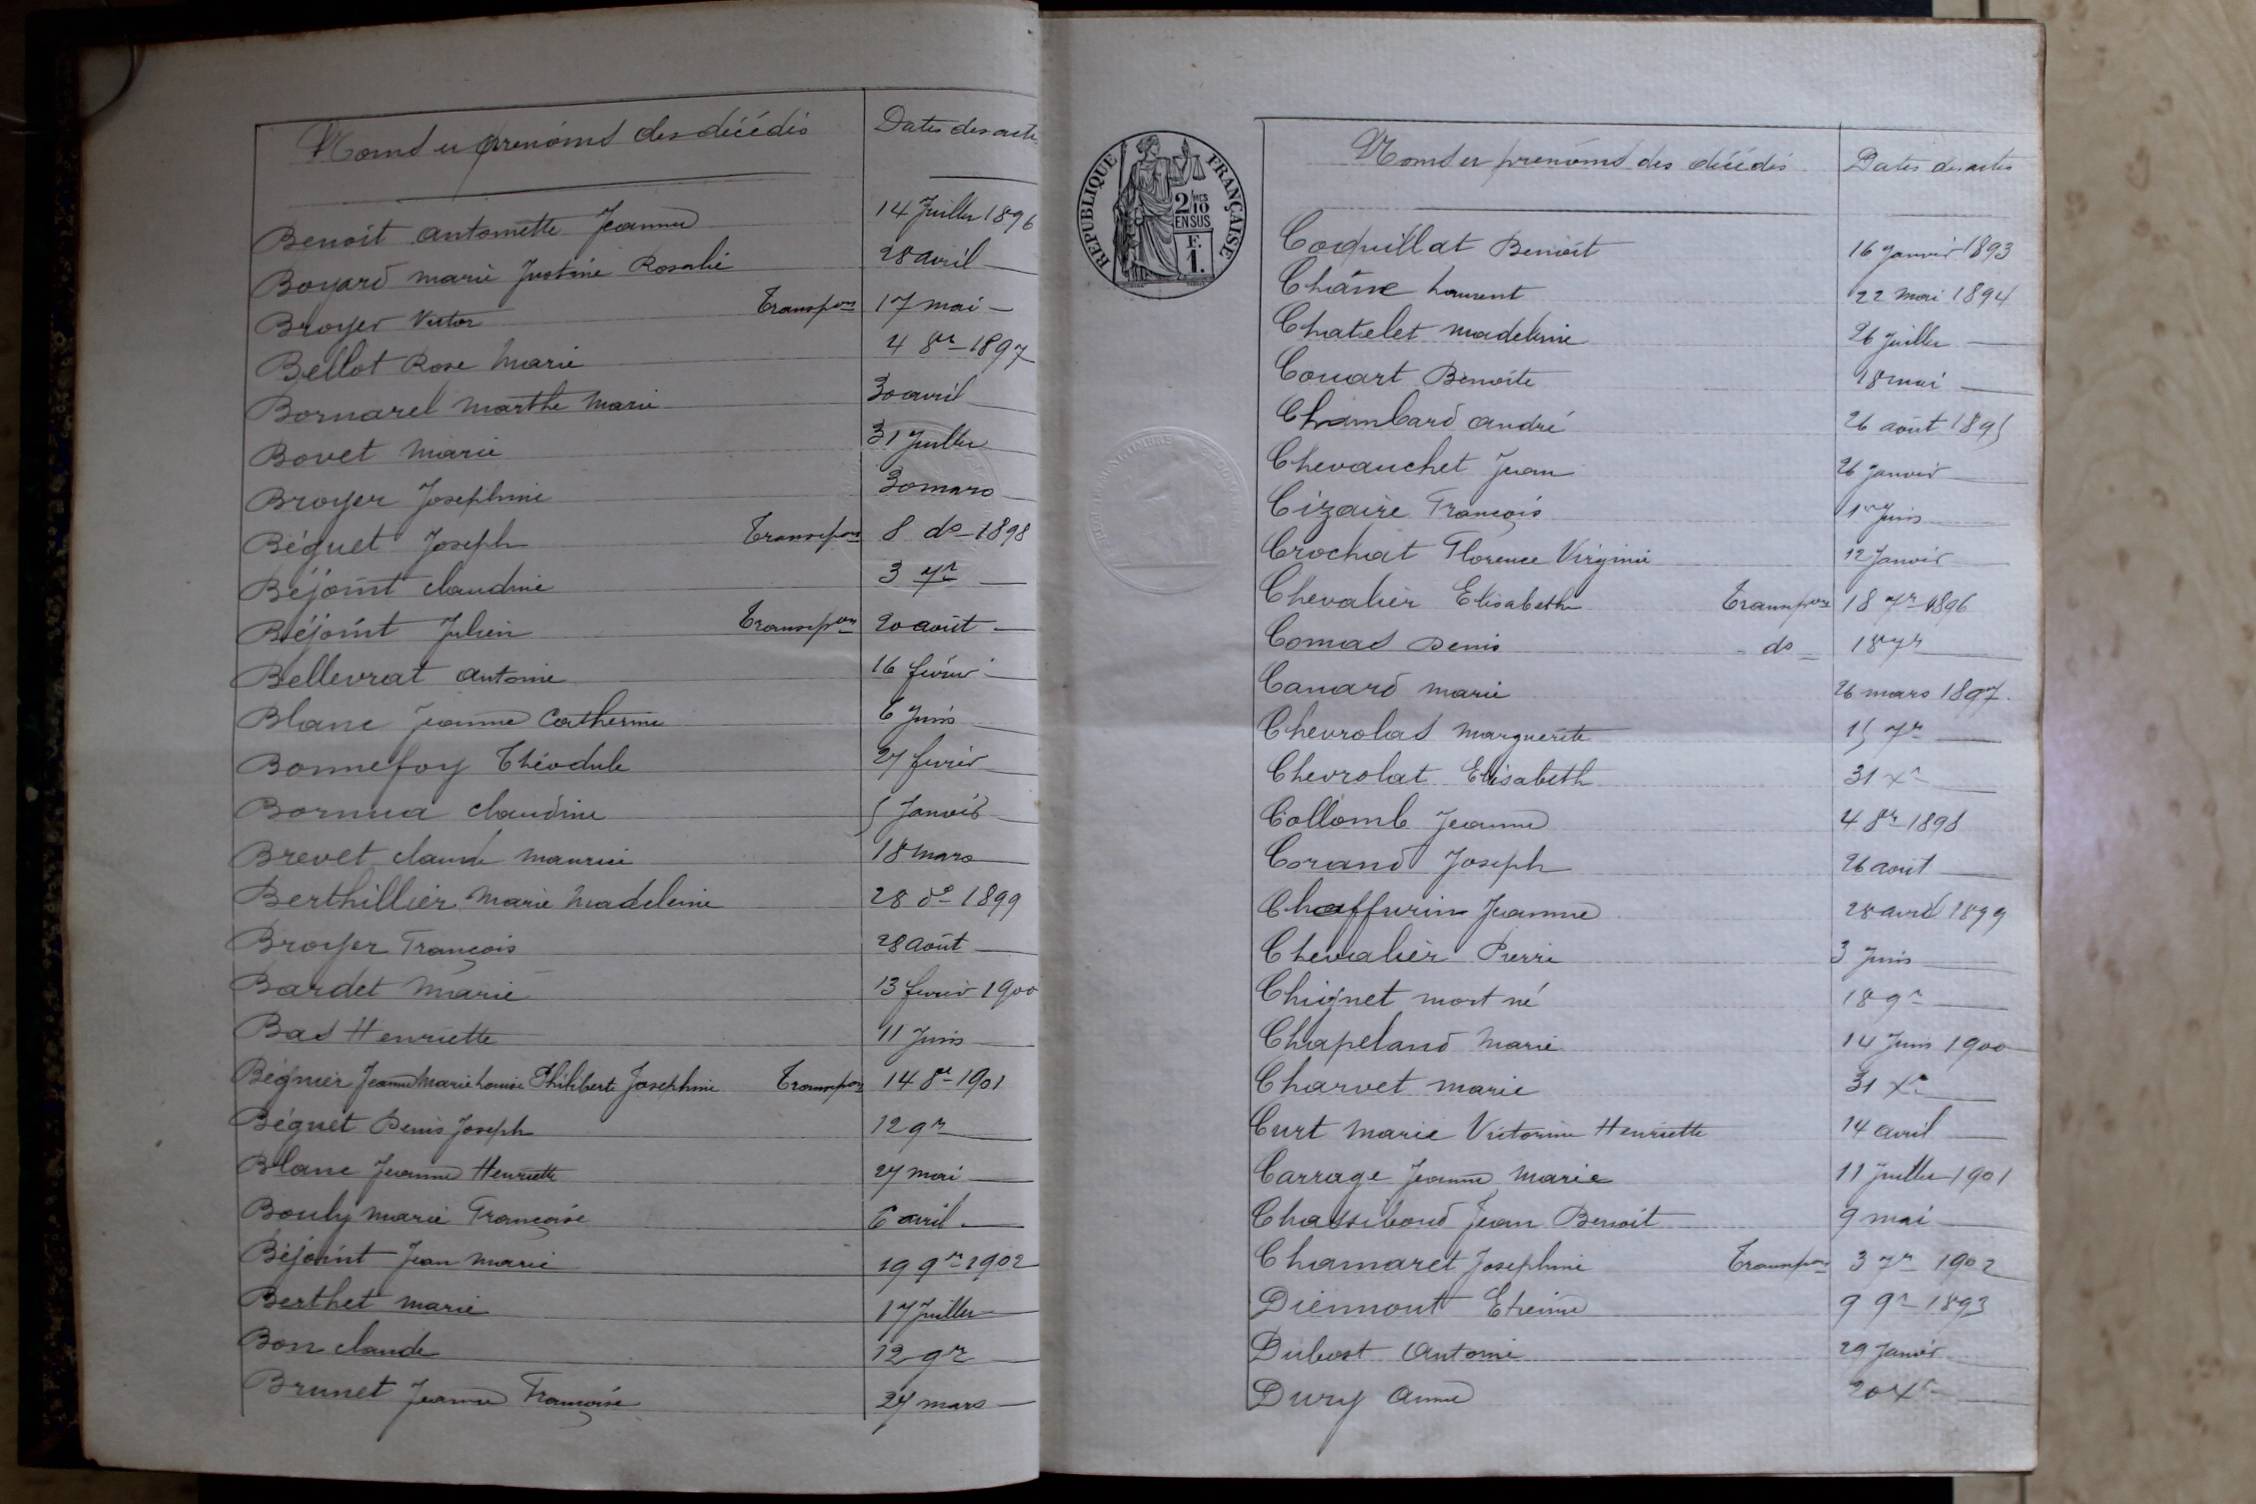 Noms et prénoms des décédés Dates des actes
Benoit Antoinette Jeanne 14 Juillet 1896
Boyard Marie Justine Rosalie 28 avril —
Broyer Victor Transpon 17 mai —
Bellot Rose Marie 4 8re 1897
Bornarel Marthe Marie 30 avril —
Bovet Marie 31 Juillet —
Broyer Joséphine 30 mars —
Béguet Joseph Transpon 8 do 1898
Béjoint Claudine 3 7r —
Béjoint Julien Transpon 20 août —
Bellevrat Antoine 16 février —
Blanc Jeanne Catherine 6 Juin —
Bonnefoy Théodule 27 février —
Bornua Claudine 5 Janvier —
Brevet Claude Maurice 18 mars —
Berthillier Marie Madeleine 28 do 1899
Broyer François 28 août —
Bardet Marie 13 février 1900
Bas Henriette 11 Juin —
Bégnier Jeanne Marie Louise Philiberte Joséphine Transpon 14 8re 1901
Béguet Denis Joseph 12 9r —
Blanc Jeanne Henriette 27 mai —
Bouly Marie Françoise 6 avril —
Béjoint Jean Marie 19 9re 1902
Berthet Marie 17 Juillet —
Bon Claude 12 9r —
Brunet Jeanne Françoise 27 mars —
RÉPUBLIQUE FRANÇAISE
2/10
EN SUS
F.
1.
Noms et prénoms des décédés Dates des actes
Coquillat Benoit 16 Janvier 1893
Châne Laurent 22 mai 1894
Chatelet Madeleine 26 Juillet —
Couart Benoite 18 mai —
Chambard André 26 août 1895
Chevauchet Jean 26 Janvier —
Cizaire François 1er Juin —
Crochat Florence Virginie 12 Janvier —
Chevalier Elisabeth Transpon 18 7r 1896
Comas Denis do 18 7r —
Canard Marie 26 mars 1897
Chevrolas Marguerite 15 7r —
Chevrolat Elisabeth 31 Xr —
Collomb Jeanne 4 8r 1898
Corand Joseph 26 août —
Chaffurin Jeanne 28 avril 1899
Chevalier Pierre 3 Juin —
Chignet mort né 18 9r —
Chapeland Marie 14 Juin 1900
Charvet Marie 31 Xr —
Curt Marie Victorine Henriette 14 avril —
Carrage Jeanne Marie 11 Juillet 1901
Chassiboud Jean Benoit 9 mai —
Chamaret Joséphine Transpon 3 7r 1902
Diennout Etienne 9 9r 1893
Dubost Antoine 29 Janvier —
Dury Anne 20 Xr —